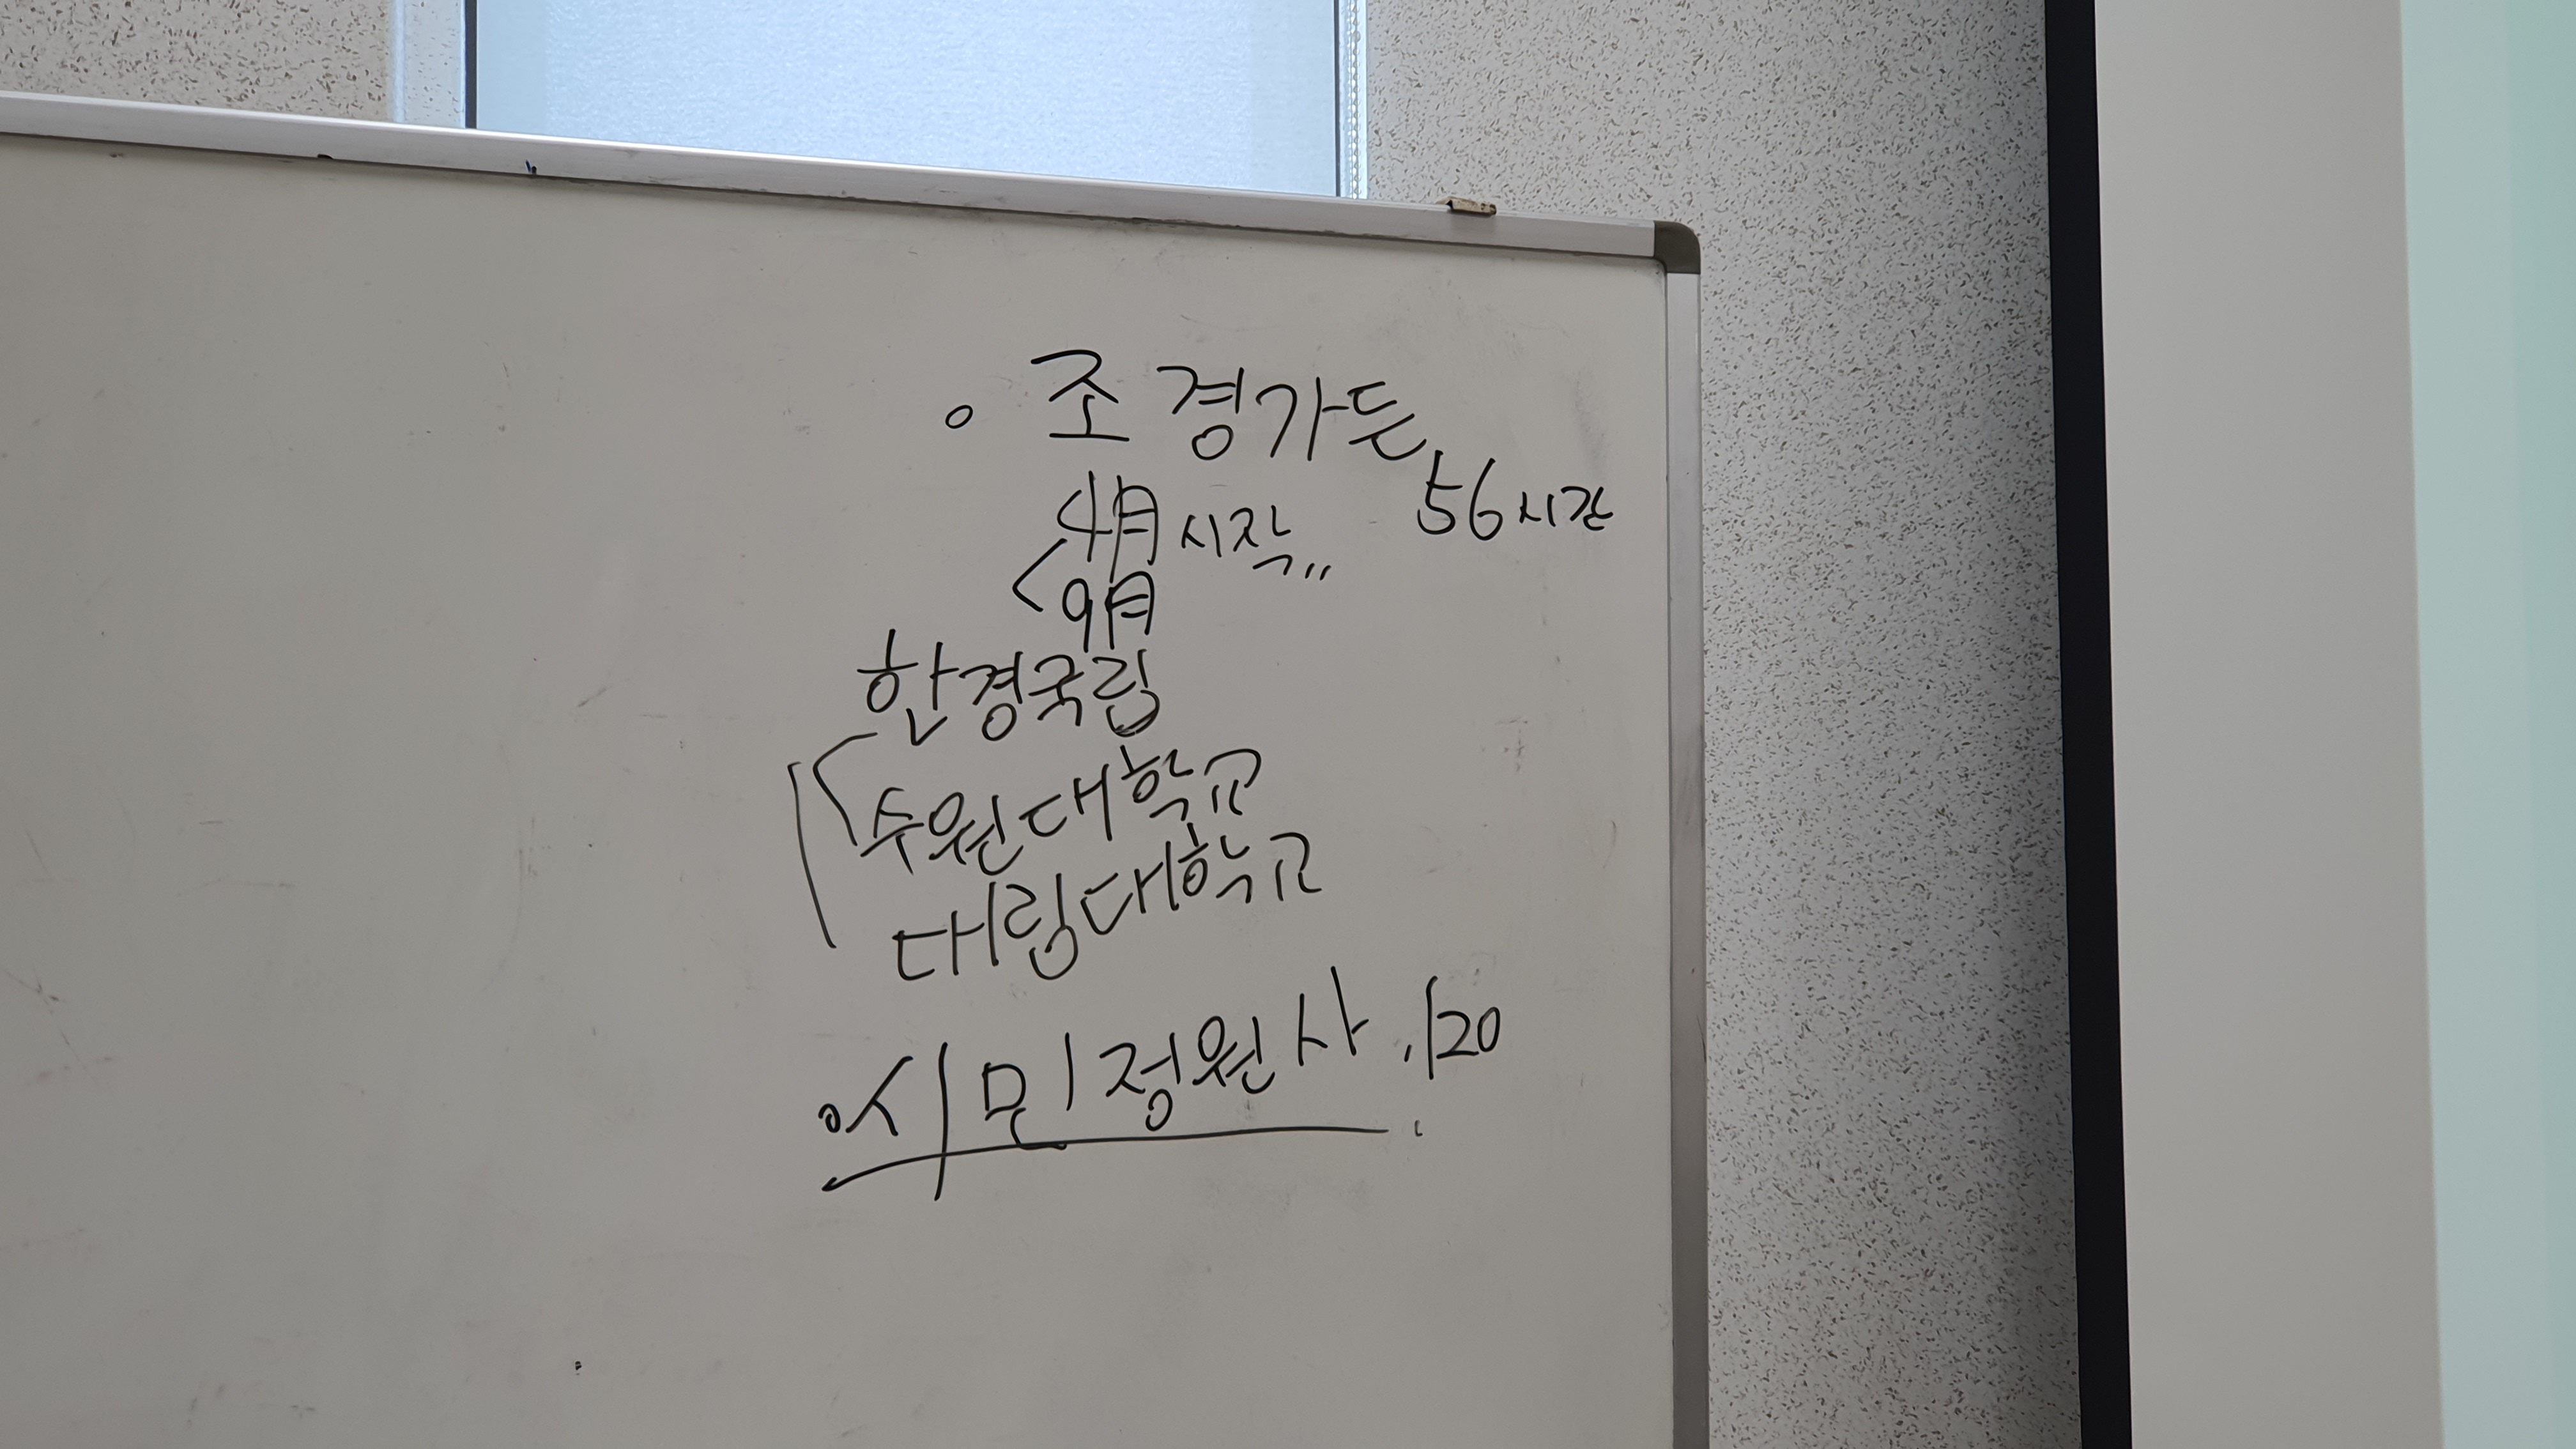 ◦ 조경가든
4月 시작〃 56시간
9月
한경국립
수원대학교
대림대학교
◦시민정원사. 120